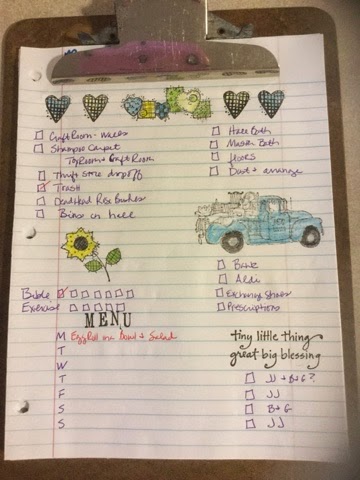 Craft Room - walls
Shampoo Carpet
Toy Room + Craft Room
Thrift store drop off
Trash
Deadhead Rex Bushes
Bins on hill
Hall Bath
Master Bath
floors
Dust + arrange
Bank
Aldi
Exchange Shoes
Prescriptions
Bible
Exercise
MENU
M Egg Roll in Bowl + Salad
T
W
T
F
S
S
tiny little thing
great big blessing
JJ + B+G?
JJ
B+G
JJ